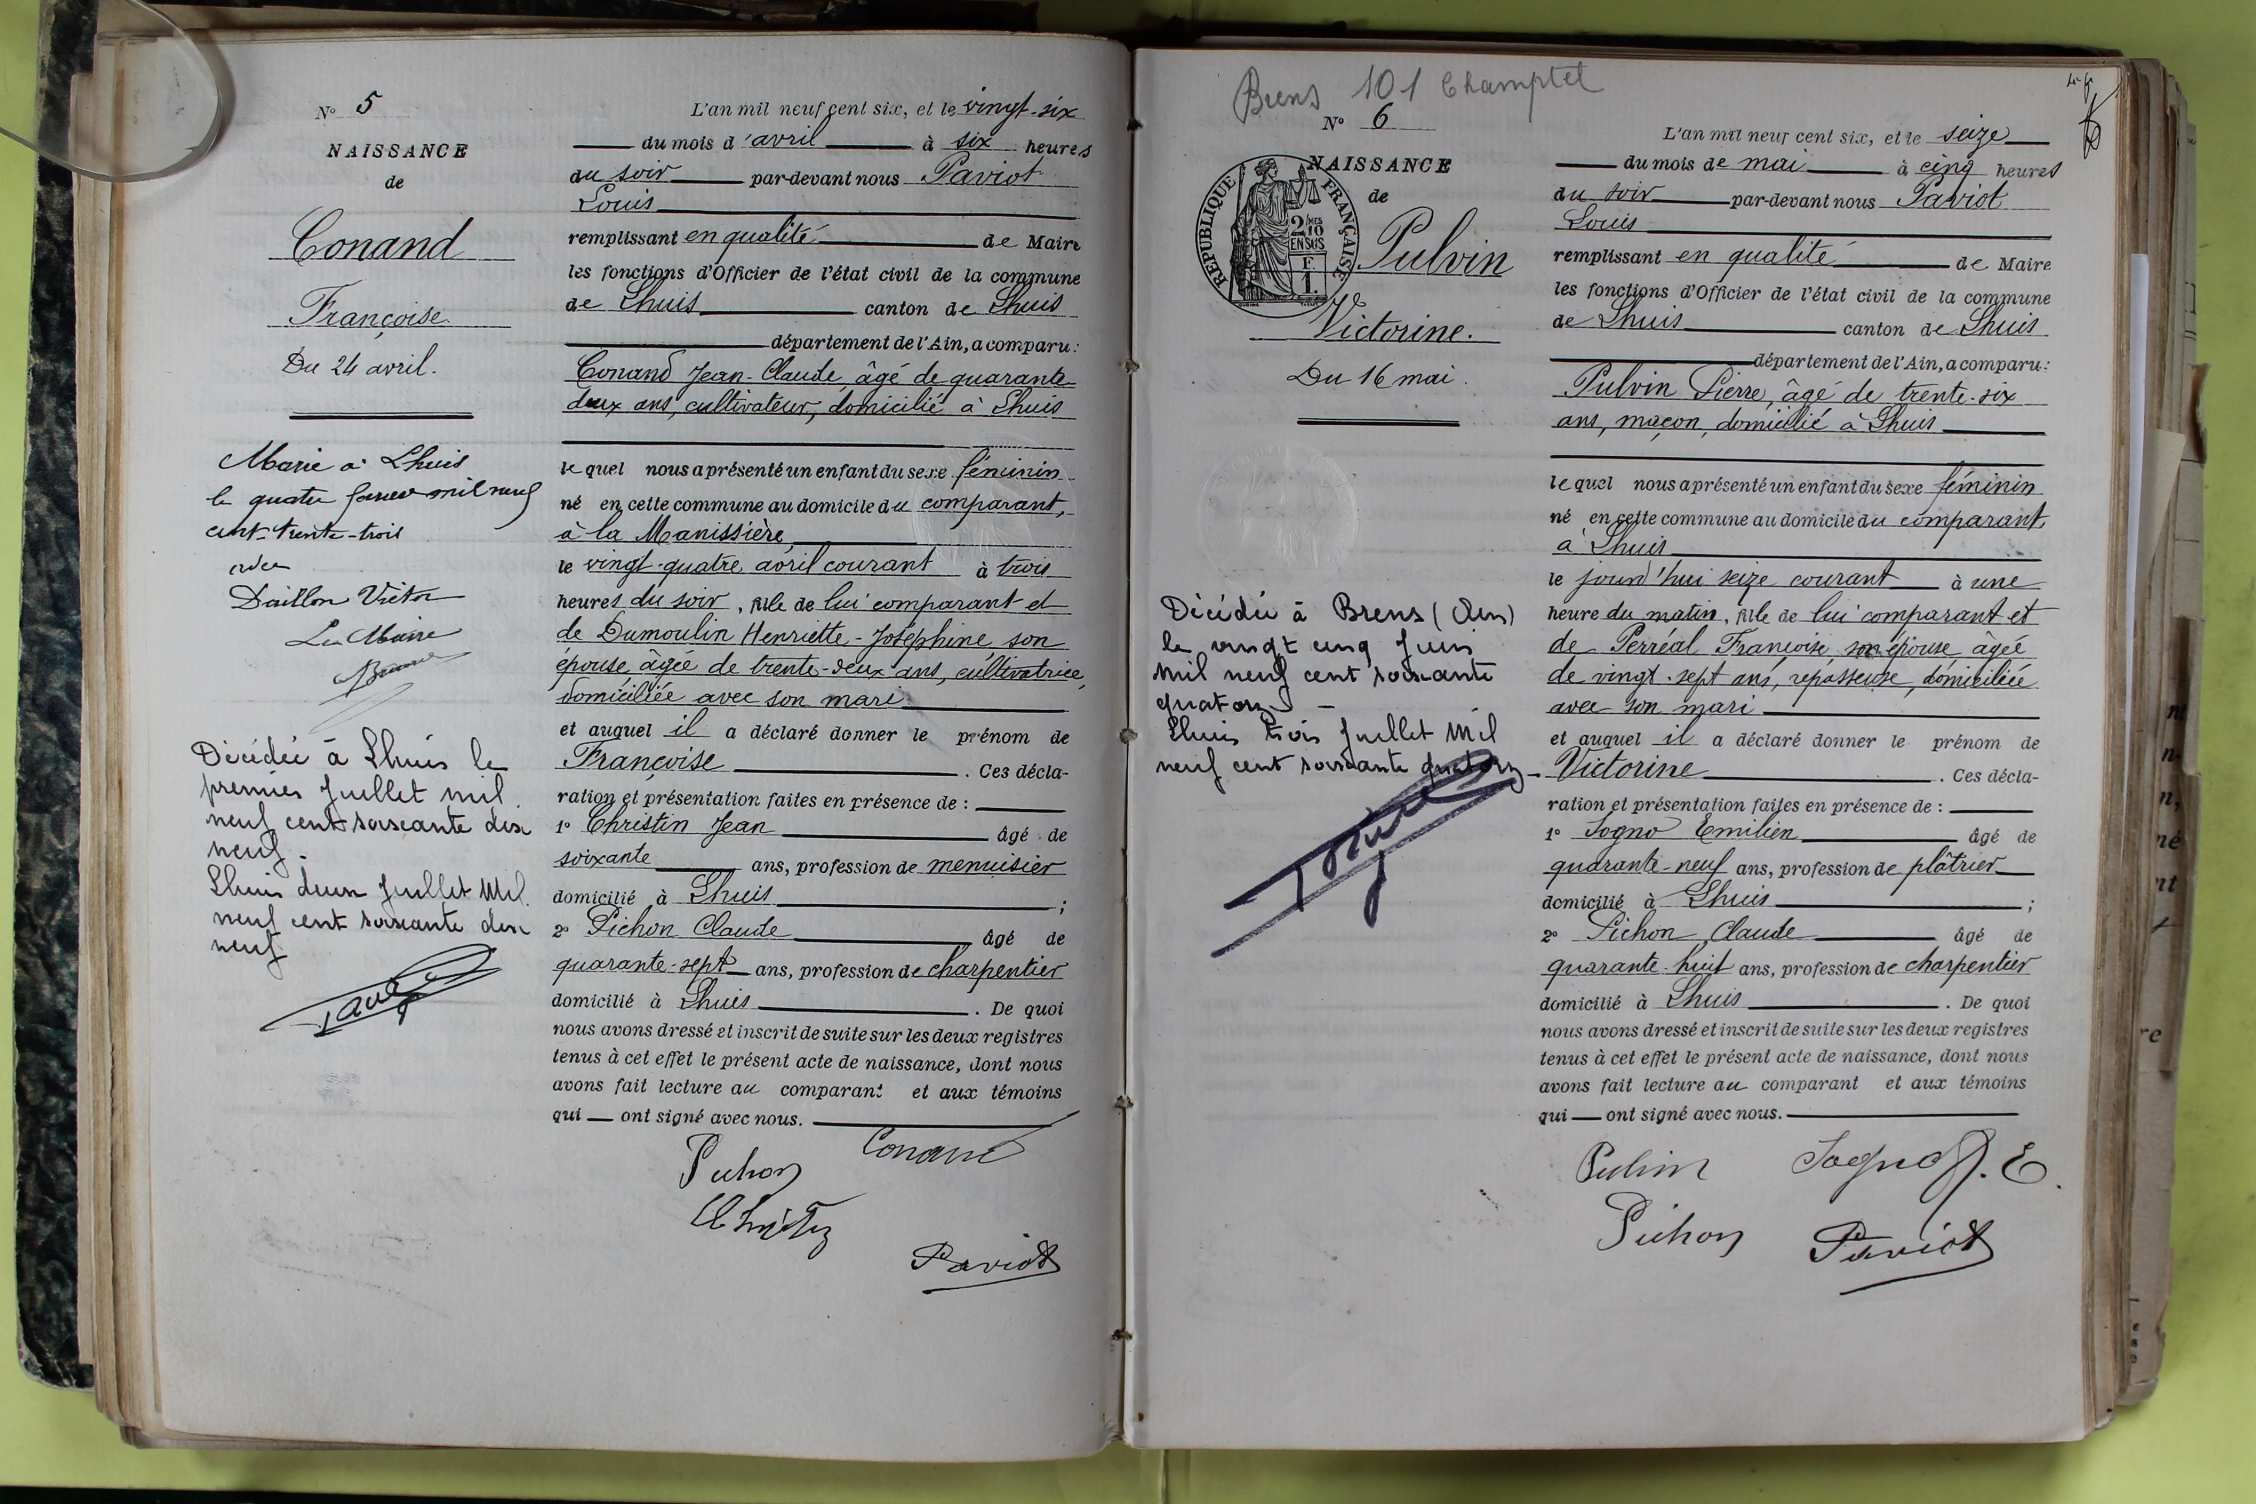 N° 5
NAISSANCE
de
Conand
Françoise
Du 24 avril.
Marié à Lhuis
le quatre février mil neuf
cent trente-trois
avec
Daillon Victor
Le Maire
Décédée à Lhuis le
premier Juillet mil
neuf cent soixante dix
neuf.
Lhuis deux Juillet Mil
neuf cent soixante dix
neuf
L'an mil neuf cent six, et le vingt-six
du mois d'avril à six heures
du soir par-devant nous Paviot
Louis
remplissant en qualité de Maire
les fonctions d'Officier de l'état civil de la commune
de Lhuis canton de Lhuis
département de l'Ain, a comparu:
Conand Jean-Claude, âgé de quarante
deux ans, cultivateur, domicilié à Lhuis
lequel nous a présenté un enfant du sexe féminin
né en cette commune au domicile du comparant,
à la Manissière
le vingt-quatre avril courant à trois
heures du soir, fille de lui comparant et
de Dumoulin Henriette-Joséphine, son
épouse, âgée de trente-deux ans, cultivatrice,
domiciliée avec son mari
et auquel il a déclaré donner le prénom de
Françoise. Ces décla-
ration et présentation faites en présence de :
1° Christin Jean âgé de
soixante ans, profession de menuisier
domicilié à Lhuis ;
2° Pichon Claude âgé de
quarante-sept ans, profession de charpentier
domicilié à Lhuis. De quoi
nous avons dressé et inscrit de suite sur les deux registres
tenus à cet effet le présent acte de naissance, dont nous
avons fait lecture au comparant et aux témoins
qui — ont signé avec nous.
Pichon Conand
Christin
Paviot
Brens 101 Champtel
N° 6
NAISSANCE
de
REPUBLIQUE FRANÇAISE
2/10 MES
EN SUS
F.
1.
Pulvin
Victorine.
Du 16 mai.
Décédée à Brens (Ain)
le vingt cinq Juin
mil neuf cent soixante
quatorze -
Lhuis trois Juillet Mil
neuf cent soixante quatorze -
L'an mil neuf cent six, et le seize
du mois de mai à cinq heures
du soir par-devant nous Paviot
Louis
remplissant en qualité de Maire
les fonctions d'Officier de l'état civil de la commune
de Lhuis canton de Lhuis
département de l'Ain, a comparu:
Pulvin Pierre, âgé de trente-six
ans, maçon, domicilié à Lhuis
lequel nous a présenté un enfant du sexe féminin
né en cette commune au domicile du comparant,
à Lhuis
le jourd'hui seize courant à une
heure du matin, fille de lui comparant et
de Perréal Françoise son épouse âgée
de vingt-sept ans, repasseuse, domiciliée
avec son mari
et auquel il a déclaré donner le prénom de
Victorine. Ces décla-
ration et présentation faites en présence de :
1° Sogno Emilien âgé de
quarante-neuf ans, profession de plâtrier
domicilié à Lhuis ;
2° Pichon Claude âgé de
quarante-huit ans, profession de charpentier
domicilié à Lhuis. De quoi
nous avons dressé et inscrit de suite sur les deux registres
tenus à cet effet le présent acte de naissance, dont nous
avons fait lecture au comparant et aux témoins
qui — ont signé avec nous.
Pulvin Sogno E.
Pichon Paviot